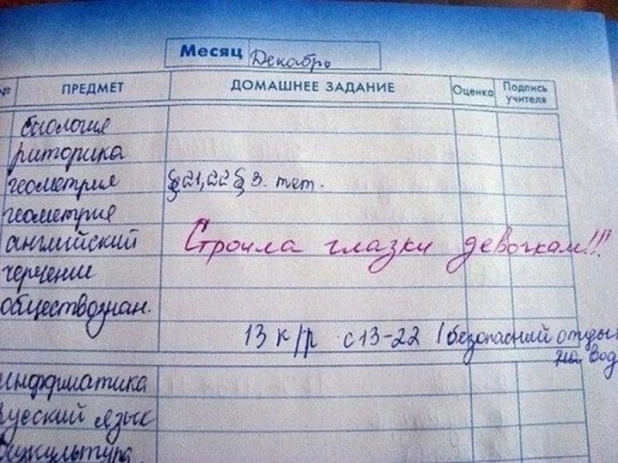 Месяц Декабрь
№ ПРЕДМЕТ ДОМАШНЕЕ ЗАДАНИЕ Оценка Подпись учителя
биология
риторика
геометрия §21,22 § З. тет.
геометрия
английский Строила глазки девочкам!!!
черчение
обществознан.
13 к/р с 13-22 / безопасний отды
на вод
информатика
русский язык
физкультура